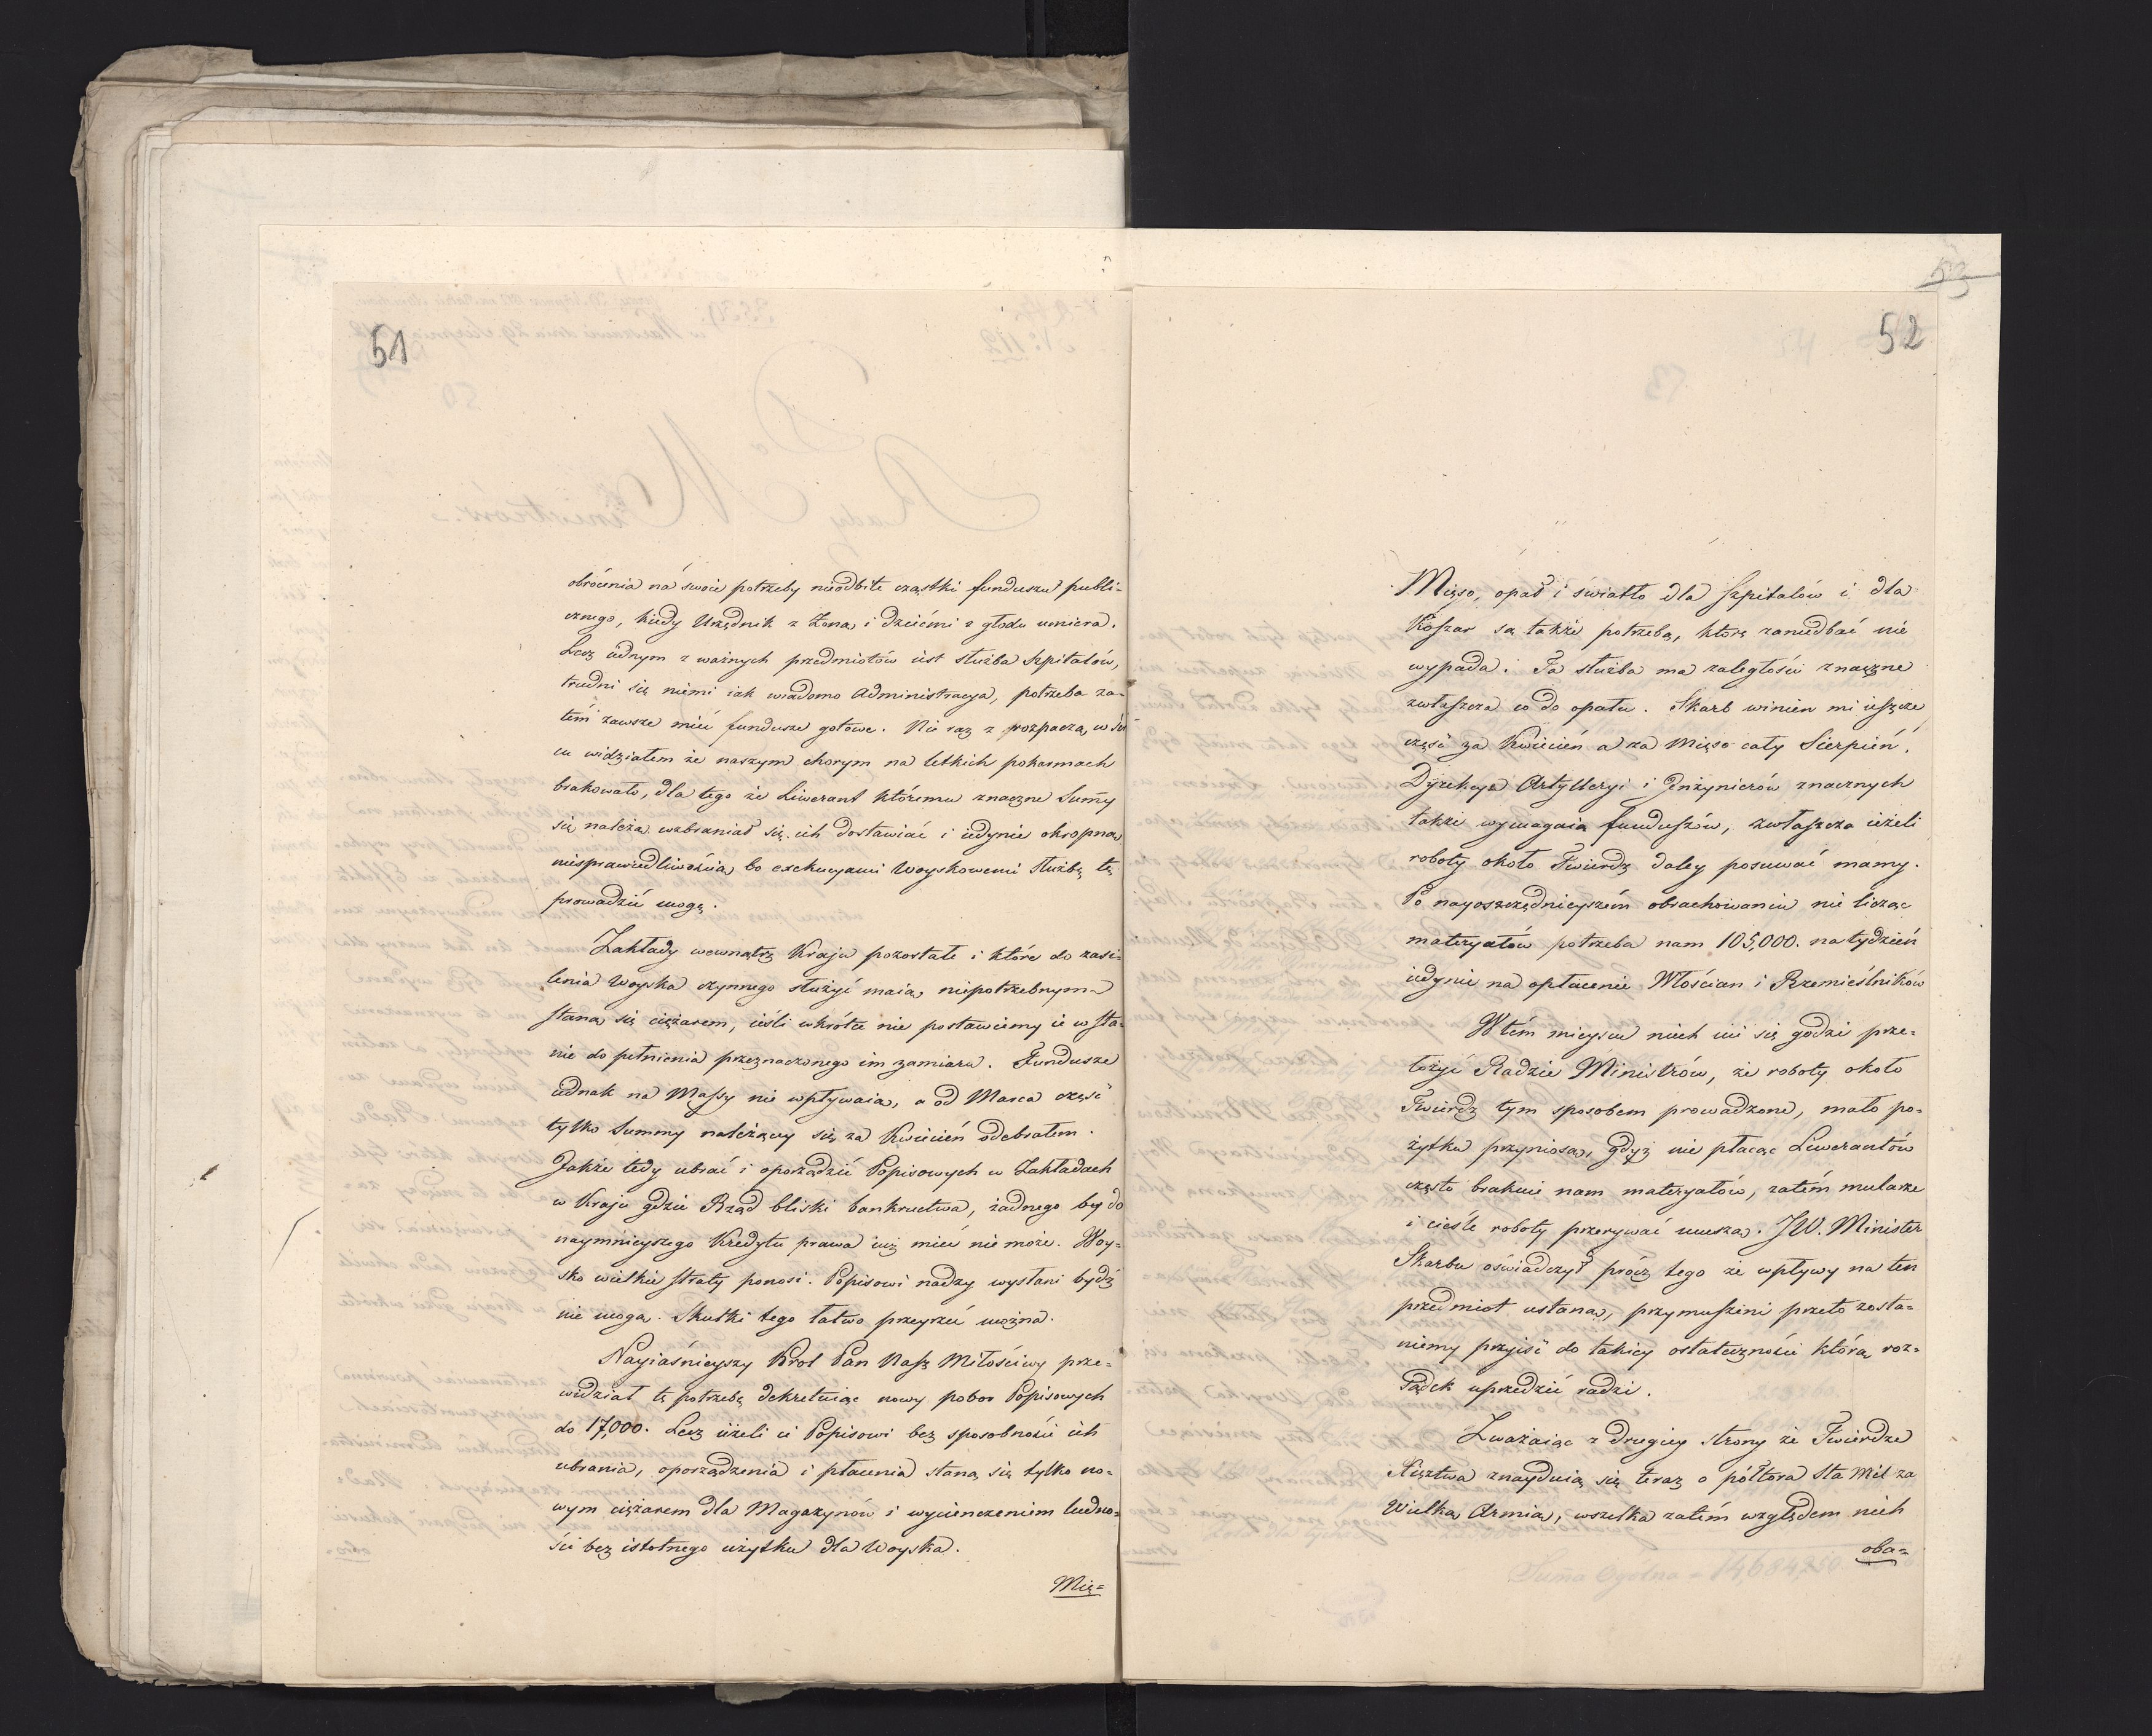 51
obrócenia na swoie potrzeby nieodbite cząstki funduszu publi-
cznego, kiedy Urzędnik z Żoną i dziećmi z głodu umiera.
Lecz iednym z ważnych przedmiotów iest służba Szpitalów,
trudni się niemi iak wiadomo Administracya, potrzeba za-
tém zawsze mieć fundusze gotowe. Nie raz z rozpaczą w ser
cu widziałem że naszym chorym na letkich pokarmach
brakowało, dla tego że Liwerant któremu znaczne Sum̄y
się należą wzbraniał się ich dostawiać i iedynie okropną
niesprawiedliwością bo exekucyami Woyskowemi Służbę tę
prowadzić mogę.
Zakłady wewnątrz Kraju pozostałe i które do zasi-
lenia Woyska czynnego służyć maią niepotrzebnym
staną się ciężarem, ieśli wkrótce nie postawiemy ie w sta-
nie do pełnienia przeznaczonego im zamiaru. Fundusze
iednak na Massy nie wpływaią, a od Marca część
tylko Summy należącey się za Kwiecień odebrałem.
Jakże tedy ubrać i oporządzić Popisowych w Zakładach
w Kraju gdzie Rząd bliski bankructwa, żadnego by do
naymnieyszego Kredytu prawa iuż mieć nie może. Woy-
sko wielkie straty ponosi. Popisowi nadzy wysłani bydź
nie mogą. Skutki tego łatwo przeyrzeć można.
Nayiaśnieyszy Król Pan Nasz Miłościwy prze-
widział tę potrzebę dekretuiąc nowy pobor Popisowych
do 17,000. Lecz ieżeli ci Popisowi bez sposobności ich
ubrania, oporządzenia i płacenia staną się tylko no-
wym ciężarem dla Magazynów i wycienczeniem ludno-
ści bez istotnego użytku dla Woyska.
Mię-
53
52
Mięso, opał i światło dla Szpitalów i dla
Koszar są także potrzebą, którą zaniedbać nie
wypada. Ta służba ma zaległości znaczne
zwłaszcza co do opału. Skarb winien mi ieszcze
część za Kwiecień a za Mięso cały Sierpień.
Dyrekcye Artylleryi i Jenżynierów znacznych
także wymagaią funduszów, zwłaszcza ieżeli
roboty około Twierdz daley posuwać mamy.
Po nayoszczędnieyszém obrachowaniu nie licząc
materyałów potrzeba nam 105,000. na tydzień
iedynie na opłacenie Włościan i Rzemieślników
W tém mieyscu niech mi się godzi prze-
łożyć Radzie Ministrów, że roboty około
Twierdz tym sposobem prowadzone, mało po-
żytku przyniosą, gdyż nie płacąc Liwerantów
często brakuie nam materyałów, zatém mularze
i cieśle roboty przerywać muszą. JW. Minister
Skarbu oświadczył prócz tego że wpływy na ten
przedmiot ustaną, przymuszeni przeto zosta-
niemy przyiść do takiey ostateczności którą roz-
sądek uprzedzić radzi.
Zważaiąc z drugiey strony że Twierdze
Xięztwa znayduią się teraz o półtora sta Mil za
Wielką Armią, wszelka zatém względem nich
oba-